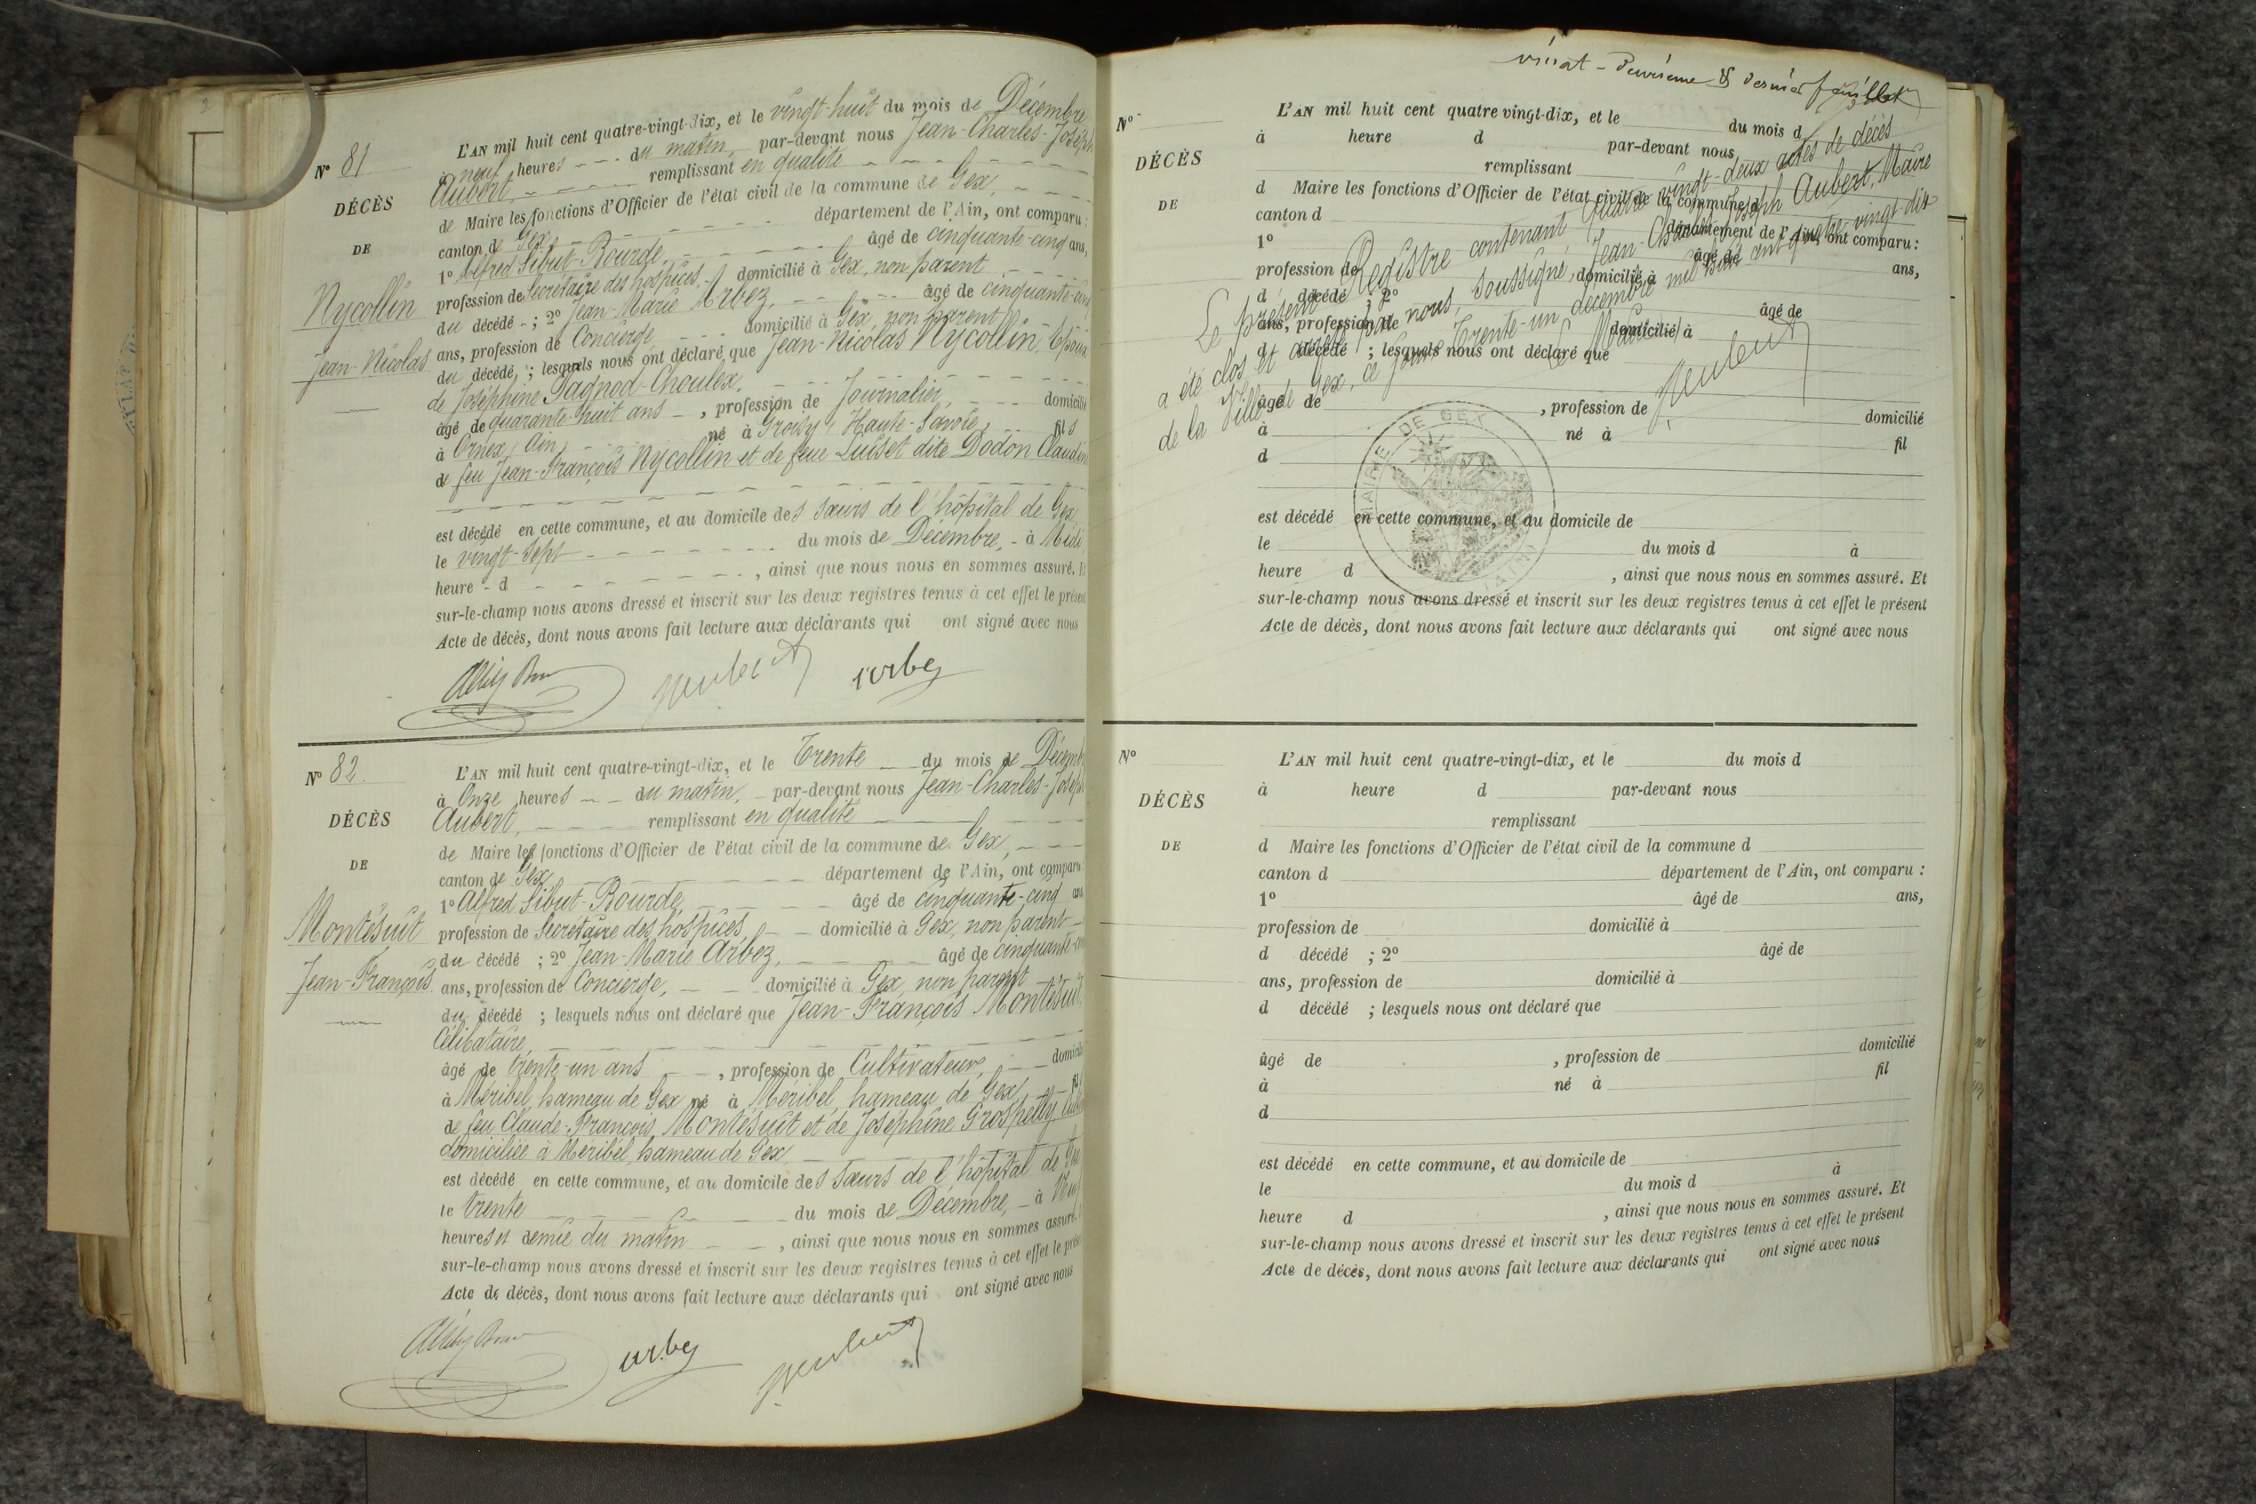 N° 81
DÉCÈS
DE
Nycollin
Jean-Nicolas
L'AN mil huit cent quatre-vingt-dix, et le vingt-huit du mois de Décembre
à neuf heures du matin, par-devant nous Jean-Charles-Joseph
Aubert, remplissant en qualité
de Maire les fonctions d'Officier de l'état civil de la commune de Gex,
canton de Gex département de l'Ain, ont comparu :
1° Alfred Sibut-Bourde, âgé de cinquante-cinq ans,
profession de Secrétaire des hospices, domicilié à Gex, non parent
du décédé ; 2° Jean-Marie Arbez, âgé de cinquante-cinq
ans, profession de Concierge, domicilié à Gex, non parent
du décédé ; lesquels nous ont déclaré que Jean-Nicolas Nycollin, Epoux
de Joséphine Pagnod-Choulex,
âgé de quarante-huit ans, profession de Journalier, domicilié
à Ornex, Ain, né à Groisy, Haute-Savoie, fils
de feu Jean-François Nycollin et de feue Luiset dite Dodon Claudine
est décédé en cette commune, et au domicile des sœurs de l'hôpital de Gex
le vingt-sept du mois de Décembre, à Midi
heure d , ainsi que nous nous en sommes assuré.
sur-le-champ nous avons dressé et inscrit sur les deux registres tenus à cet effet le présent
Acte de décès, dont nous avons fait lecture aux déclarants qui ont signé avec nous
Aubert Arbez
N° 82.
DÉCÈS
DE
Montésuit
Jean-François
L'AN mil huit cent quatre-vingt-dix, et le Trente du mois de Décemb
à Onze heures du matin, par-devant nous Jean-Charles-Joseph
Aubert, remplissant en qualité
de Maire les fonctions d'Officier de l'état civil de la commune de Gex,
canton de Gex département de l'Ain, ont comparu
1° Alfred Sibut-Bourde, âgé de cinquante-cinq ans
profession de Secrétaire des hospices, domicilié à Gex, non parent
du décédé ; 2° Jean-Marie Arbez, âgé de cinquante-cinq
ans, profession de Concierge, domicilié à Gex, non parent
du décédé ; lesquels nous ont déclaré que Jean-François Montésuit,
Célibataire
âgé de trente-un ans, profession de Cultivateur, domicilié
à Méribel, hameau de Gex né à Méribel, hameau de Gex, fils
de feu Claude-François Montésuit et de Joséphine Grospelly
domiciliée à Méribel, hameau de Gex
est décédé en cette commune, et au domicile des sœurs de l'hôpital de Gex
le trente du mois de Décembre, à Neuf
heures et demie du matin, ainsi que nous nous en sommes assuré.
sur-le-champ nous avons dressé et inscrit sur les deux registres tenus à cet effet le prése
Acte de décès, dont nous avons fait lecture aux déclarants qui ont signé avec nous
Arbez Aubert
vingt-deuxième & dernier feuillet
N°
DÉCÈS
DE
L'AN mil huit cent quatre vingt-dix, et le du mois d
à heure d par-devant nous
remplissant
d Maire les fonctions d'Officier de l'état civil de la commune d
canton d département de l'Ain, ont comparu :
1° âgé de ans,
profession de domicilié à
d décédé ; 2° âgé de
ans, profession de domicilié à
d décédé ; lesquels nous ont déclaré que
âgé de , profession de domicilié
à né à fil
d
est décédé en cette commune, et au domicile de
le du mois d à
heure d , ainsi que nous nous en sommes assuré. Et
sur-le-champ nous avons dressé et inscrit sur les deux registres tenus à cet effet le présent
Acte de décès, dont nous avons fait lecture aux déclarants qui ont signé avec nous
Le présent Registre contenant quatre vingt-deux actes de décès
a été clos et arrêté par nous soussigné, Jean-Charles-Joseph Aubert, Maire
de la Ville de Gex, ce jour Trente-un décembre mil huit cent quatre-vingt-dix
Le Maire,
Aubert
MAIRIE DE GEX
AIN
N°
DÉCÈS
DE
L'AN mil huit cent quatre-vingt-dix, et le du mois d
à heure d par-devant nous
remplissant
d Maire les fonctions d'Officier de l'état civil de la commune d
canton d département de l'Ain, ont comparu :
1° âgé de ans,
profession de domicilié à
d décédé ; 2° âgé de
ans, profession de domicilié à
d décédé ; lesquels nous ont déclaré que
âgé de , profession de domicilié
à né à fil
d
est décédé en cette commune, et au domicile de
le du mois d à
heure d , ainsi que nous nous en sommes assuré. Et
sur-le-champ nous avons dressé et inscrit sur les deux registres tenus à cet effet le présent
Acte de décès, dont nous avons fait lecture aux déclarants qui ont signé avec nous